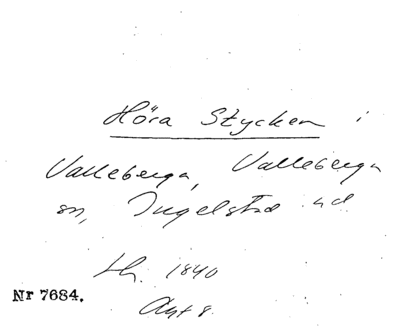 Höra Stycken i
Valleberga, Valleberga
sn, Ingelstad hd
Lh. 1840
Nr 7684.
Akt 8.